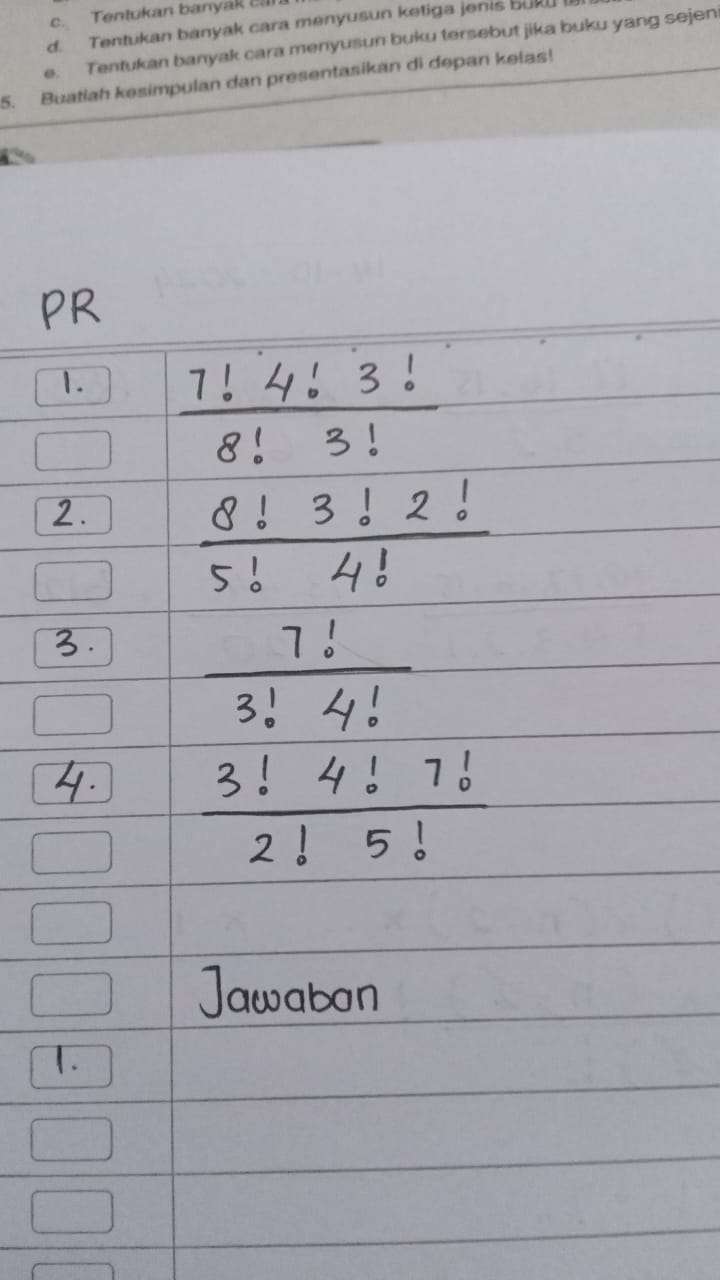 c. Tentukan banyak
d. Tentukan banyak cara menyusun ketiga jenis buku
e. Tentukan banyak cara menyusun buku tersebut jika buku yang sejen
5. Buatlah kesimpulan dan presentasikan di depan kelas!
PR
1. 7! 4! 3!
8! 3!
2. 8! 3! 2!
5! 4!
3. 7!
3! 4!
4. 3! 4! 7!
2! 5!
Jawaban
1.